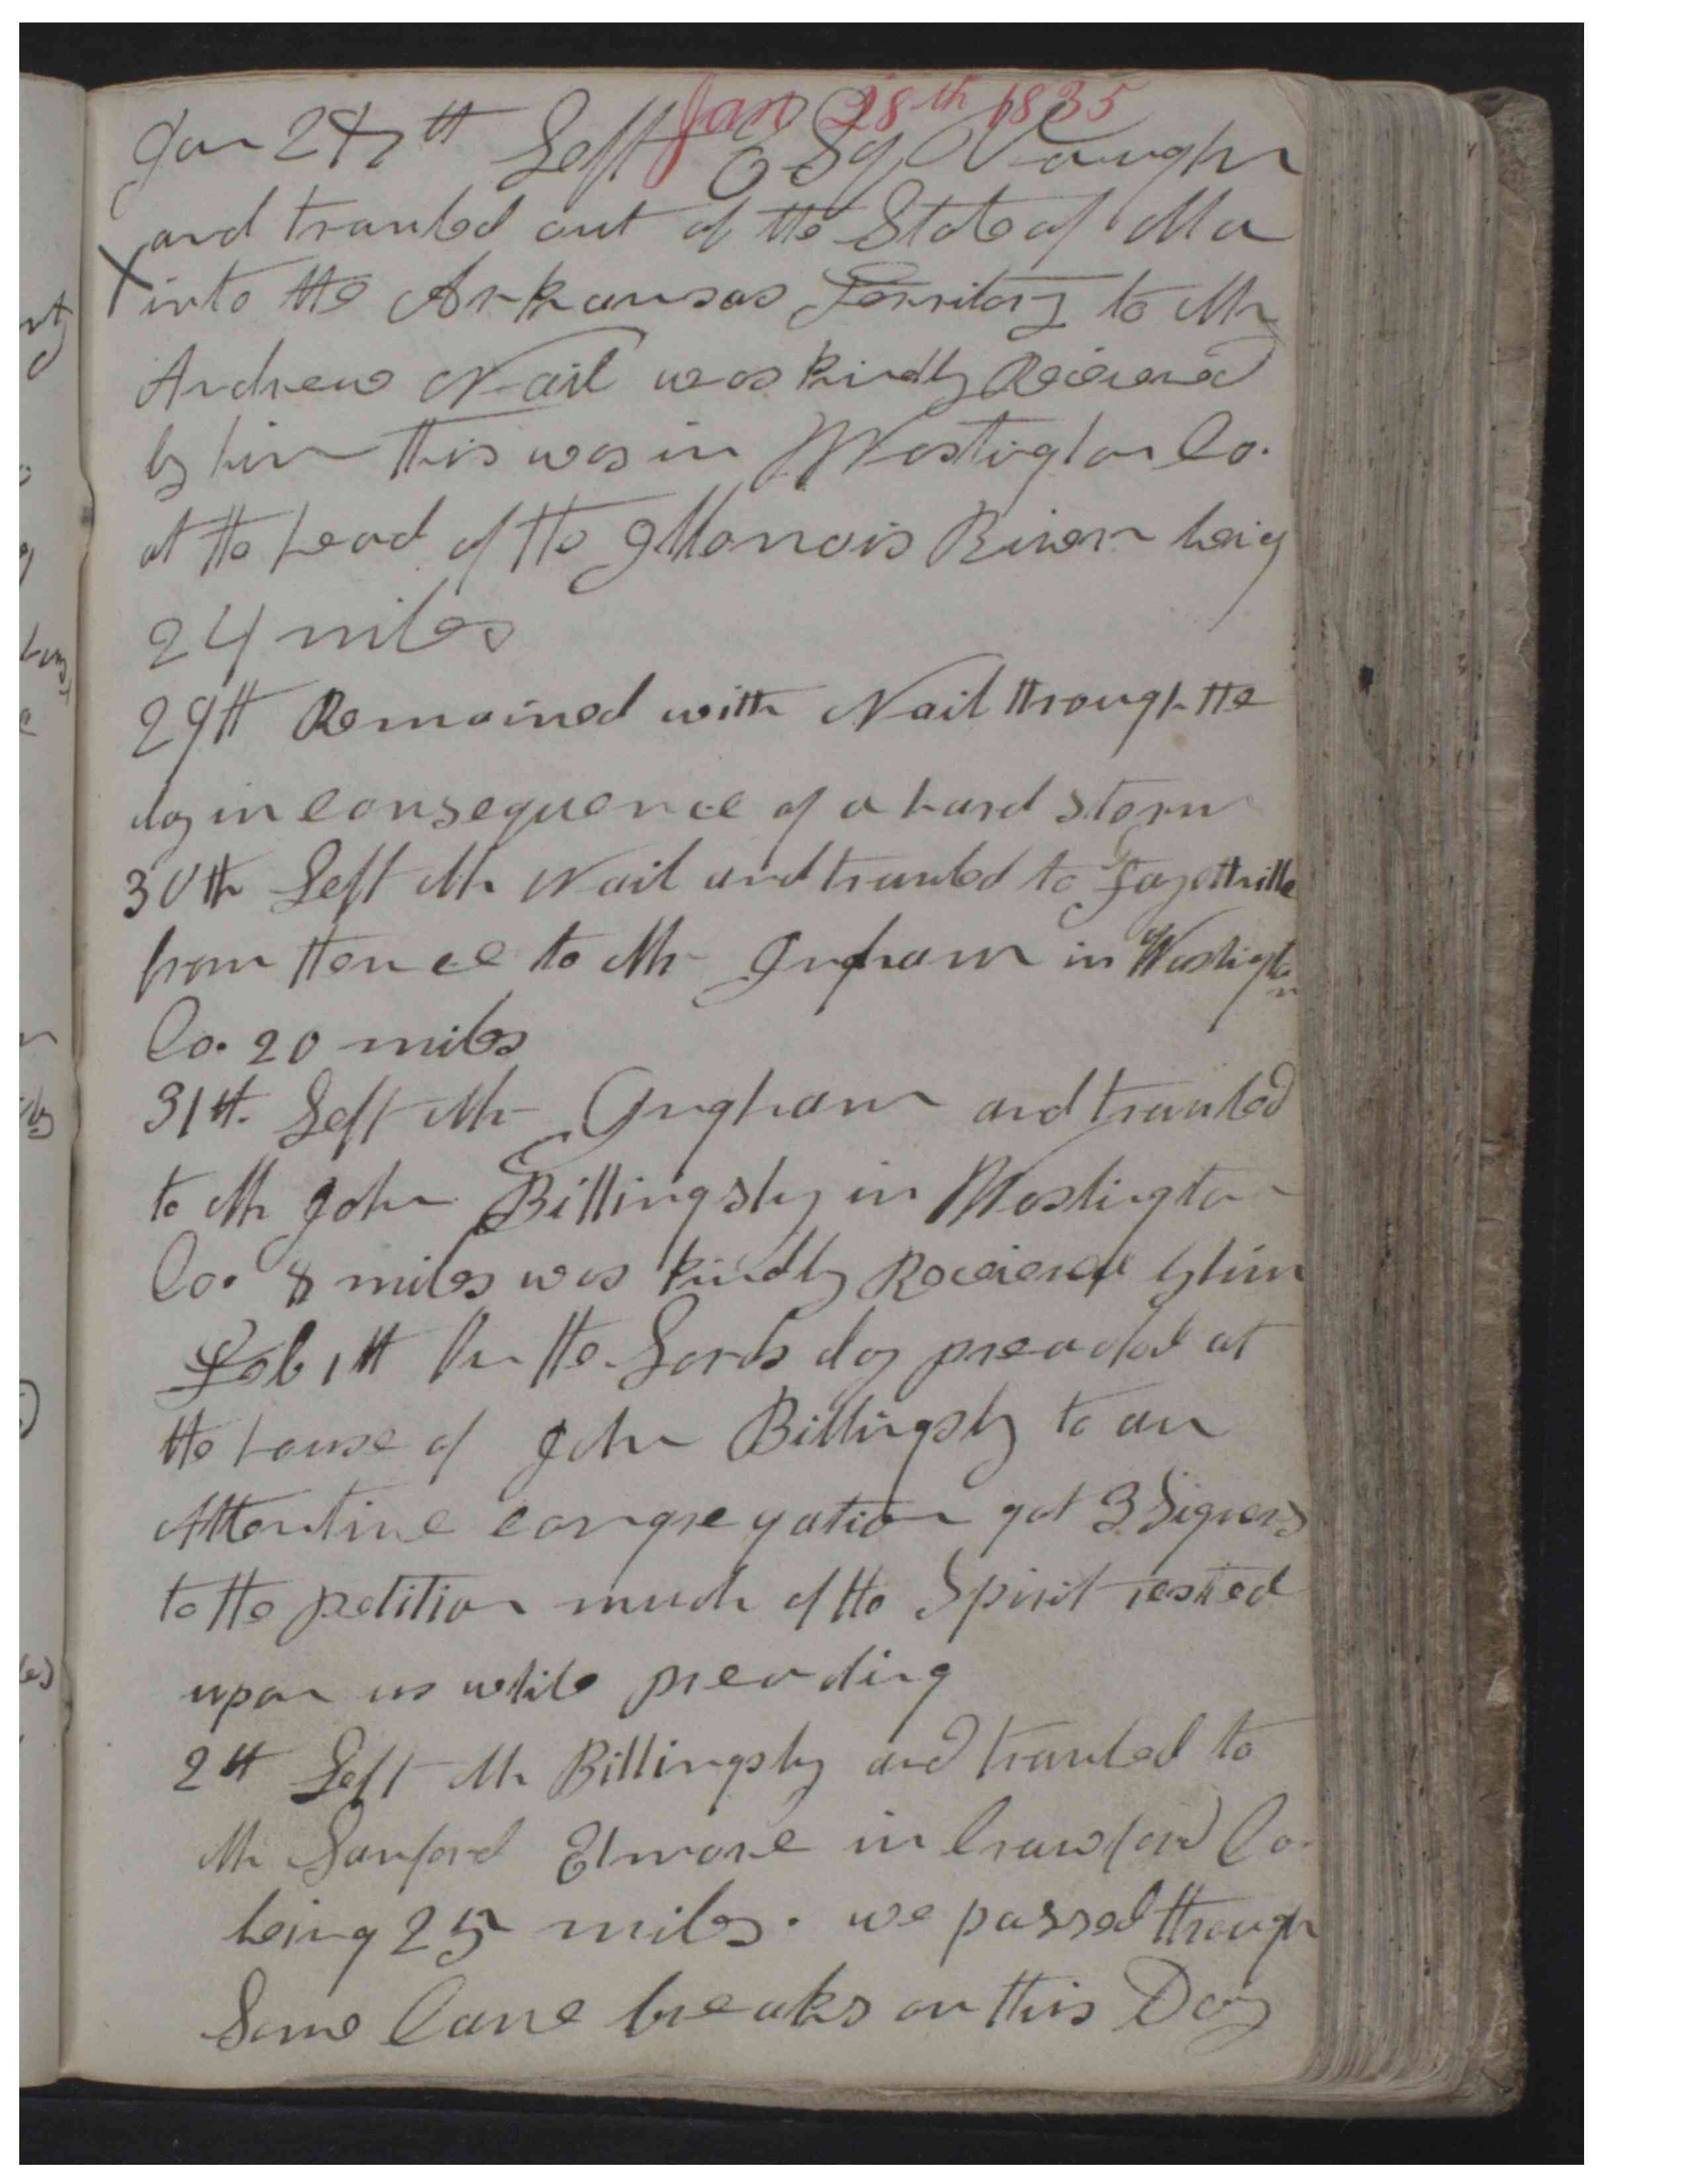 Jan 28th 1835
Jan 28th Left Esq Vaughn
and traviled out of the State of Mo
into the Arkansas Territory to Mr
Andrew Nail was kindly Received
by him this was in Washington Co.
at the head of the Illanois River being
24 miles
29th Remained with Nail through the
day in consequence of a hard storm
30th Left Mr Nail and traviled to Fayettville
from thence to Mr Ingham in Washington
Co. 20 miles
31st. Left Mr Ingham and traviled
to Mr John Billingsly in Washington
Co. 8 miles was kindly Received by him
Feb 1st On the Lords day preached at
the house of John Billingsly to an
Attentive congregation got 3 Signers
to the petition much of the Spirit rested
upon us while preaching
2d Left Mr Billingsly and traviled to
Mr Sanford Elmore in Crawford Co.
being 25 miles. we passed through
Some Cane breaks on this Day